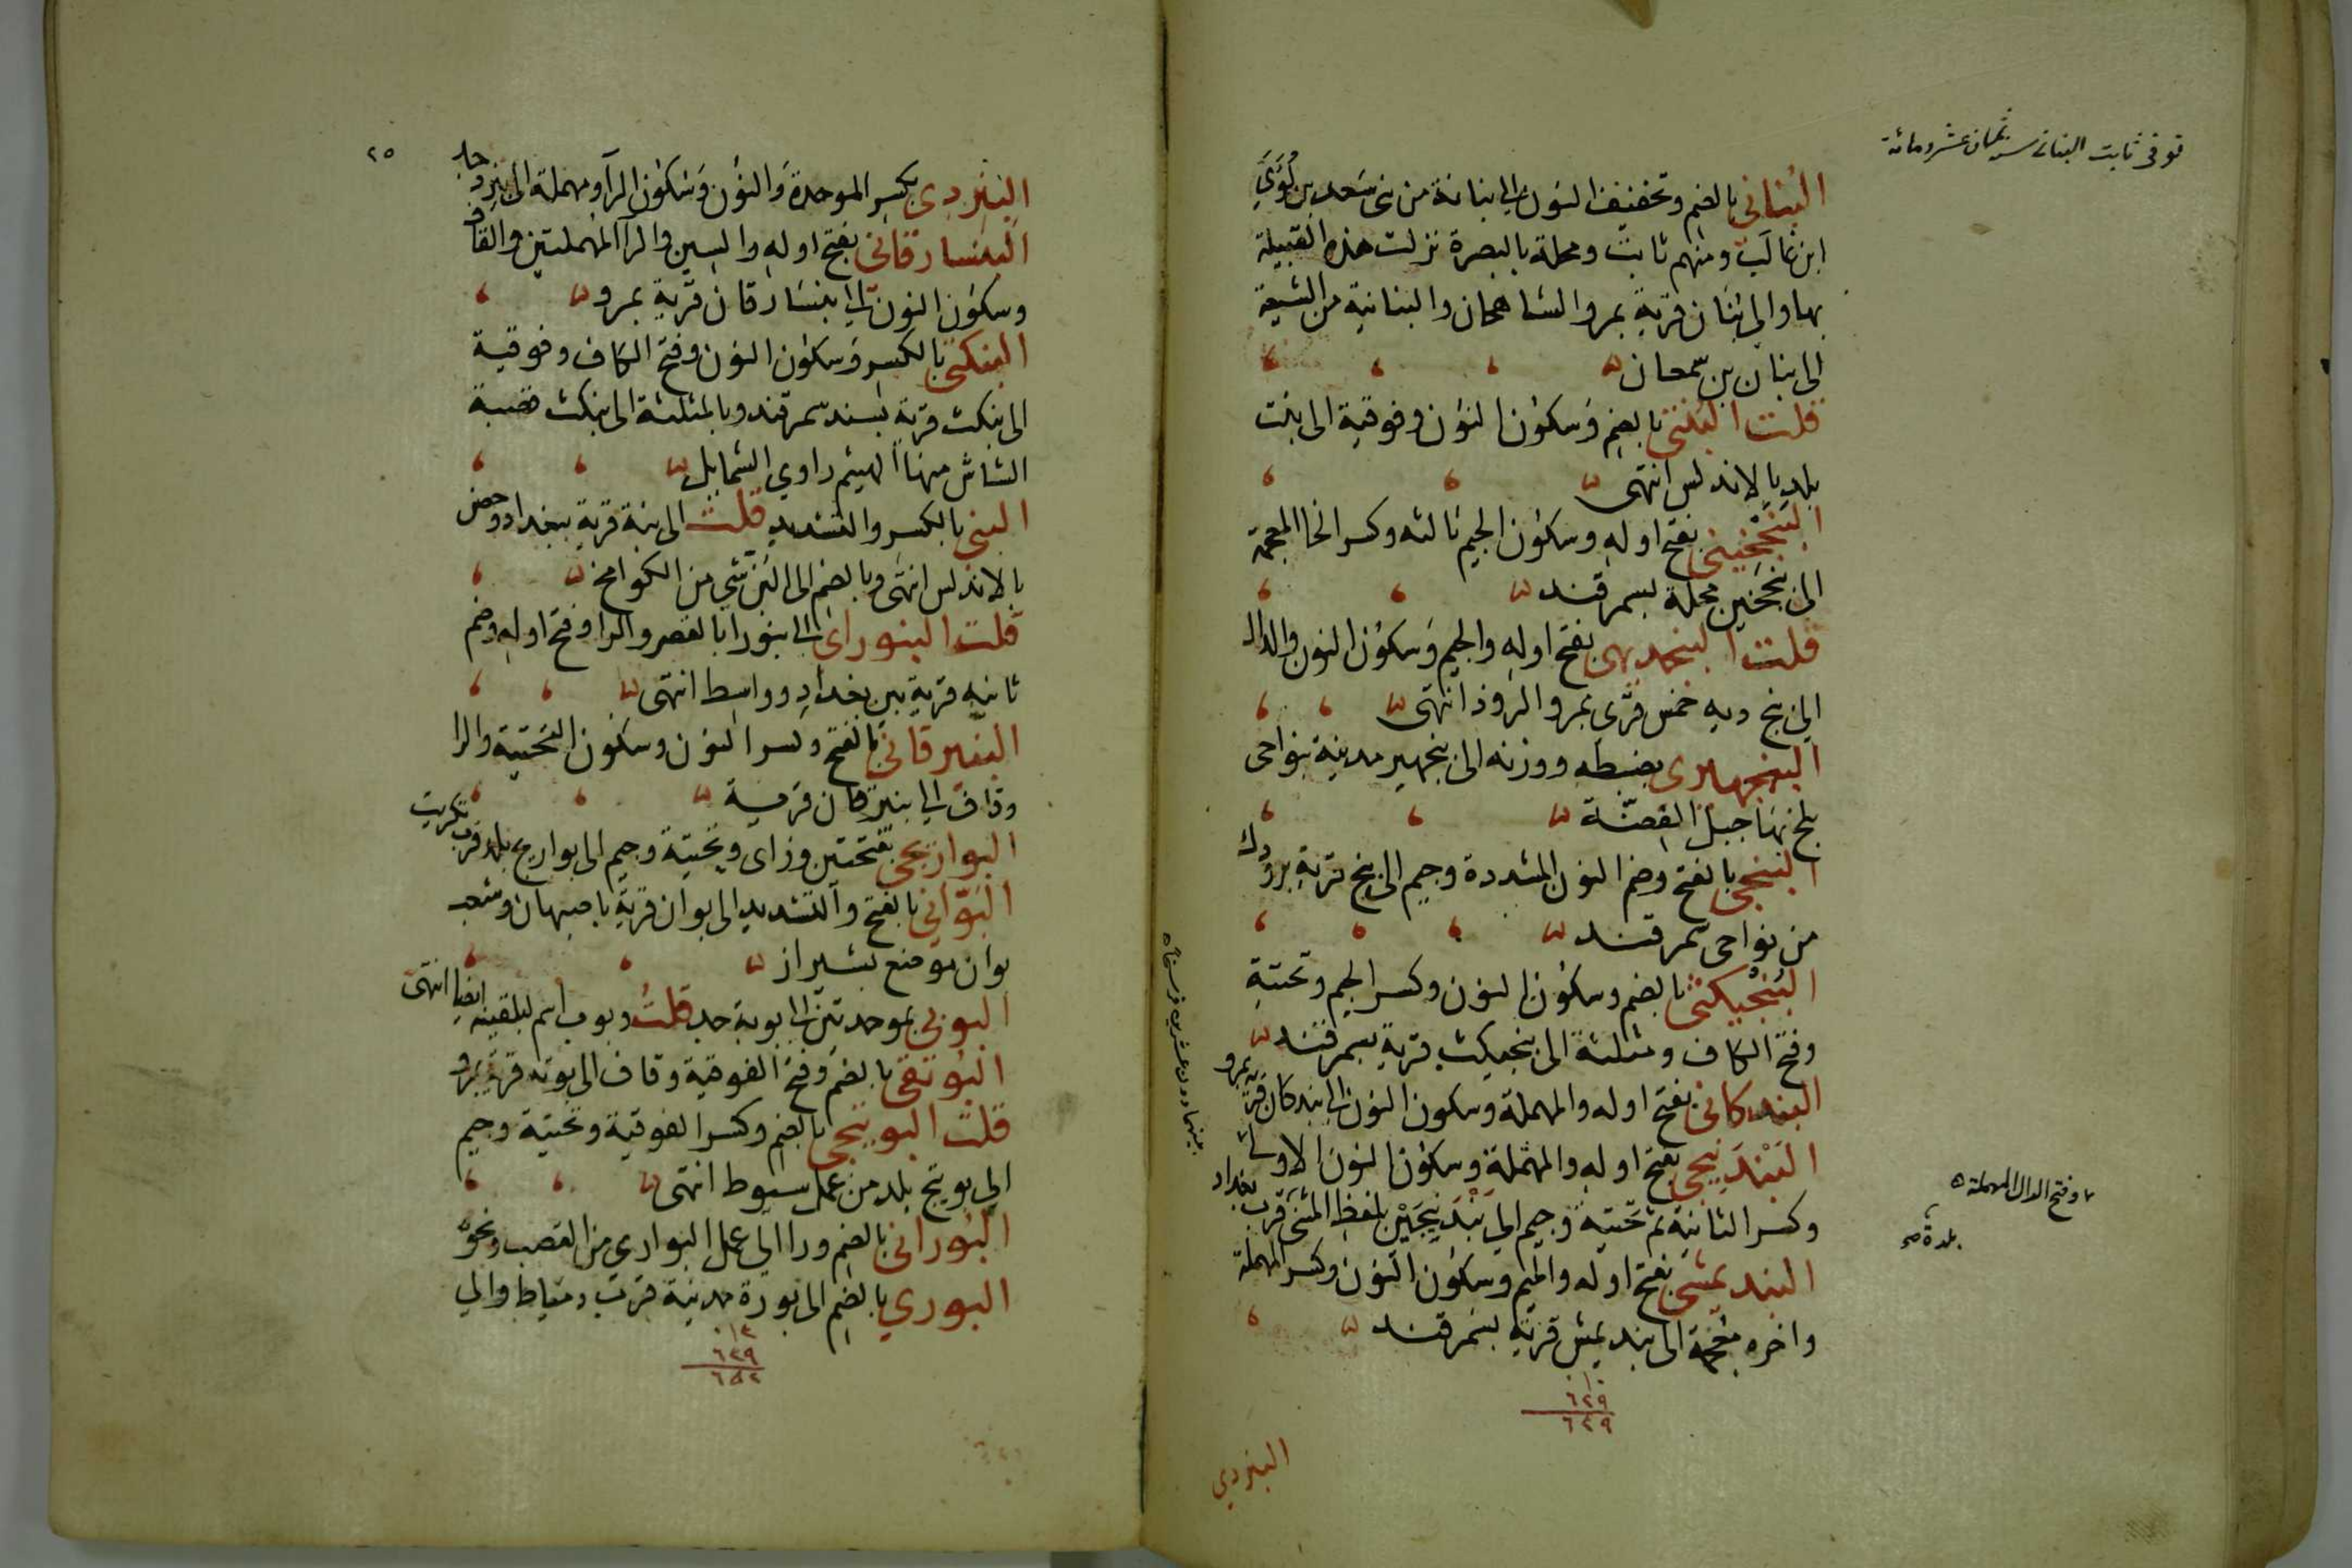 توفى ثابت البنانى سنة ثمان عشر ومائة
البُنانى بالضم وتخفيف النون الى بنانة من بنى سَعد بن لُؤَيّ
ابن غالب ومنهم ثابت ومحلة بالبصرة نزلت هذه القبيلة
بها والى بُنَان قرية بمرو الشاهجان والبنانية من الشيعة
الى بنان بن سمعان
قلت البُنْتى بالضم وسكون النون وفوقية الى بنت
بلد بالاندلس انتهى
البَنْجَخينى بفتح اوله وسكون الجيم ثالثه وكسر الخا المعجمة
الى بنجخين محلة بسمرقند
قلت البنجديهى بفتح اوله والجيم وسكون النون والدال
الى بنج ديه خمس قرى بمرو الروذ انتهى
البنجهيرى بضبطه ووزنه الى بنجهير مدينة بنواحى
بلخ بها جبل الفضّة
البنجى بالفتح وضم النون المشددة وجيم الى بنج قرية برودك
من نواحى سمرقند
البُنْجيكثى بالضم وسكون النون وكسر الجيم وتحتية
وفتح الكاف ومثلثة الى بنجيكث قرية بسمرقند
البندكانى بفتح اوله والمهملة وسكون النون الى بندكان قرية بمرو
بينها دون عشرين فرسخا
البَنْدَنيجى بفتح اوله والمهملة وسكون النون الاولى
وفتح الدال المهملة
وكسر الثانية ثم تحتية وجيم الى بَنْدَنيجَيْن بلفظ المثنى قرب بغداد
بلدة صح
البنديمشى بفتح اوله والميم وسكون النون وكسر المهملة
واخره معجمة الى بنديمش قرية بسمرقند
١٠
٦٢٩
٦٣٩
البنيردى
٢٥
البِنِيْردى بكسر الموحدة والنون وسكون الرآ ومهملة الى بنيرد جد
البَنسارقانى بفتح اوله والسين والرآ المهملتين والقاف
وسكون النون الى بنسارقان قرية بمرو
البنكتى بالكسر وسكون النون وفتح الكاف وفوقية
الى بنكت قرية بسند سمرقند وبالمثلثة الى بنكث قصبة
الشاش منها الهيثم راوي الشمايل
البنى بالكسر والتشديد قلت الى بنة قرية ببغداد وحصن
بالاندلس انتهى وبالضم الى البُن شئ من الكوامخ
قلت البنوراى الى بنورا بالقصر والرا وفتح اوله وضم
ثانيه قرية بين بغداد وواسط انتهى
البنيرقانى بالفتح وكسر النون وسكون التحتية والرا
وقاف الى بنيرقان قرية
البوازيجى بفتحتين وزاى وتحتية وجيم الى بوازيج بلد قرب تكريت
البَوّانى بالفتح والتشديد الى بوان قرية باصبهان وشعب
بوان موضع بشيراز
البوبى بموحدتين الى بوبة جد قلتُ وبوب اسم لبلقينه ايضا انتهى
البُوتقى بالضم وفتح الفوقية وقاف الى بوته قرية بمرو
قلت البوتيجى بالضم وكسر الفوقية وتحتية وجيم
الى بوتيج بلد من عمل سيوط انتهى
البُورانى بالضم ورا الى عمل البوارى من القصب ونحوه
البوري بالضم الى بورة مدينة قرب دمياط والى
١٣
٦٣٩
٦٥٢